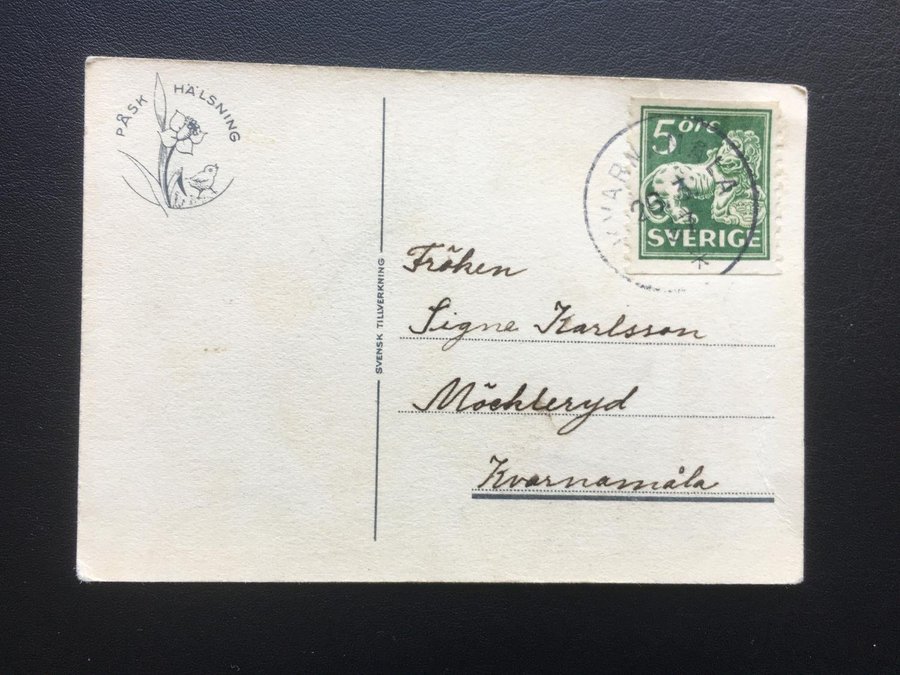 PÅSK HÄLSNING
5 ÖRE
SVERIGE
Fröken
Signe Karlsson
Möckleryd
Kvarnamåla
SVENSK TILLVERKNING